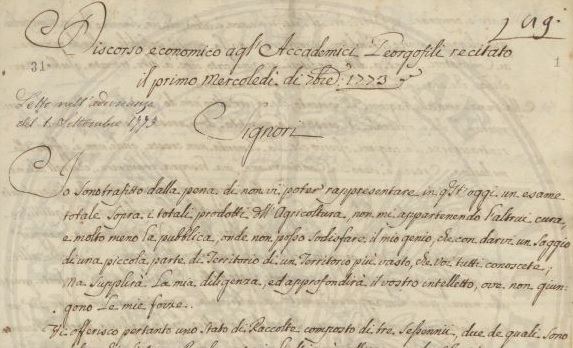 Lug.
Discorso economico agl' Accademici Georgofili recitato
31.
il primo Mercoledi di 7bre 1773
1
Letto nell'adunanza
del 1. Settembre 1773
Signori
Io sono trafitto dalla pena di non vi poter rappresentare in quest'oggi un esame
totale sopra i totali prodotti dell'Agricoltura, non mi appartenendo l'altrui cura,
e molto meno la pubblica, onde non posso sodisfare il mio genio, che con darvi un saggio
di una piccola parte di Territorio di un Territorio più vasto, che voi tutti conoscete;
Ma supplirà la mia diligenza, ed approfondirà il vostro intelletto, ove non giun-
gono le mie forze.
Vi offerisco pertanto uno Stato di Raccolte composto di tre Sessennii, due de quali sono